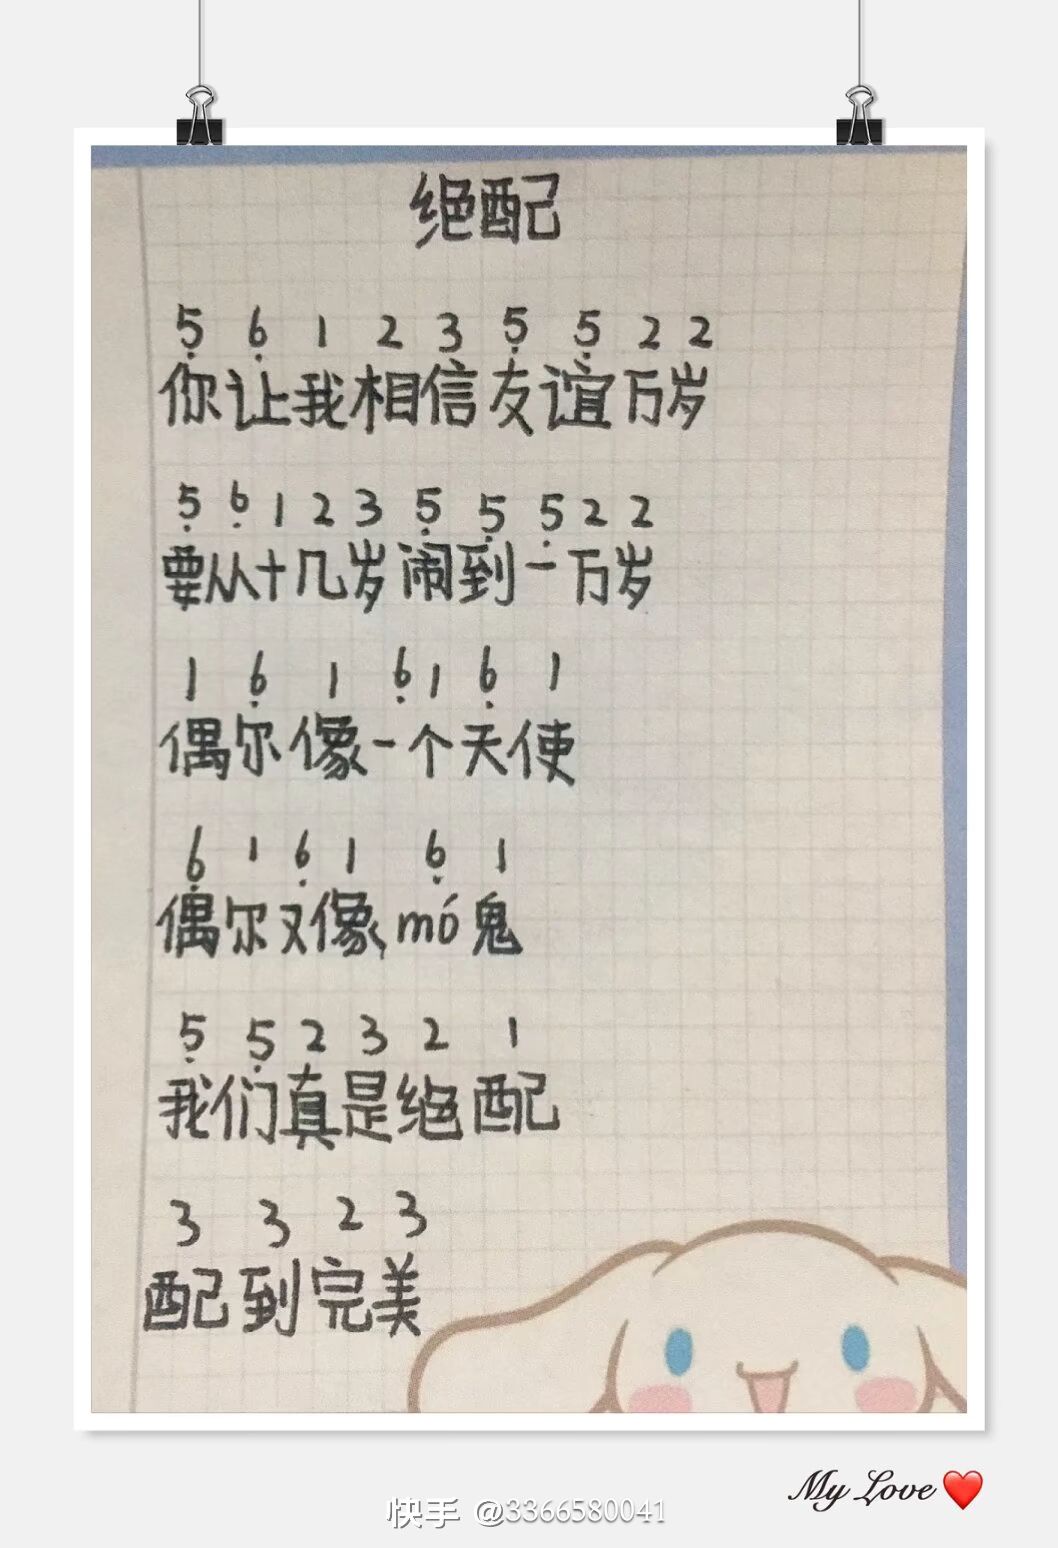 绝配
5̣ 6̣ 1 2 3 5̣ 5̣ 2 2
你让我相信友谊万岁
5̣ 6̣ 1 2 3 5̣ 5̣ 5̣ 2 2
要从十几岁闹到一万岁
1 6̣ 1 6̣ 1 6̣ 1
偶尔像一个天使
6̣ 1 6̣ 1 6̣ 1
偶尔又像mó鬼
5̣ 5̣ 2 3 2 1
我们真是绝配
3 3 2 3
配到完美
My Love❤️
快手 @3366580041